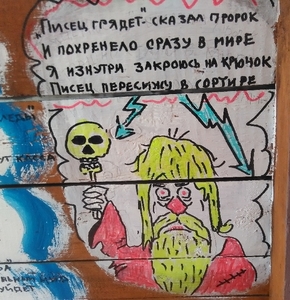 "Писец грядет"-сказал пророк
и похренело сразу в мире
я изнутри закроюсь на крючок
писец пересижу в сортире
ут касса
уйдет